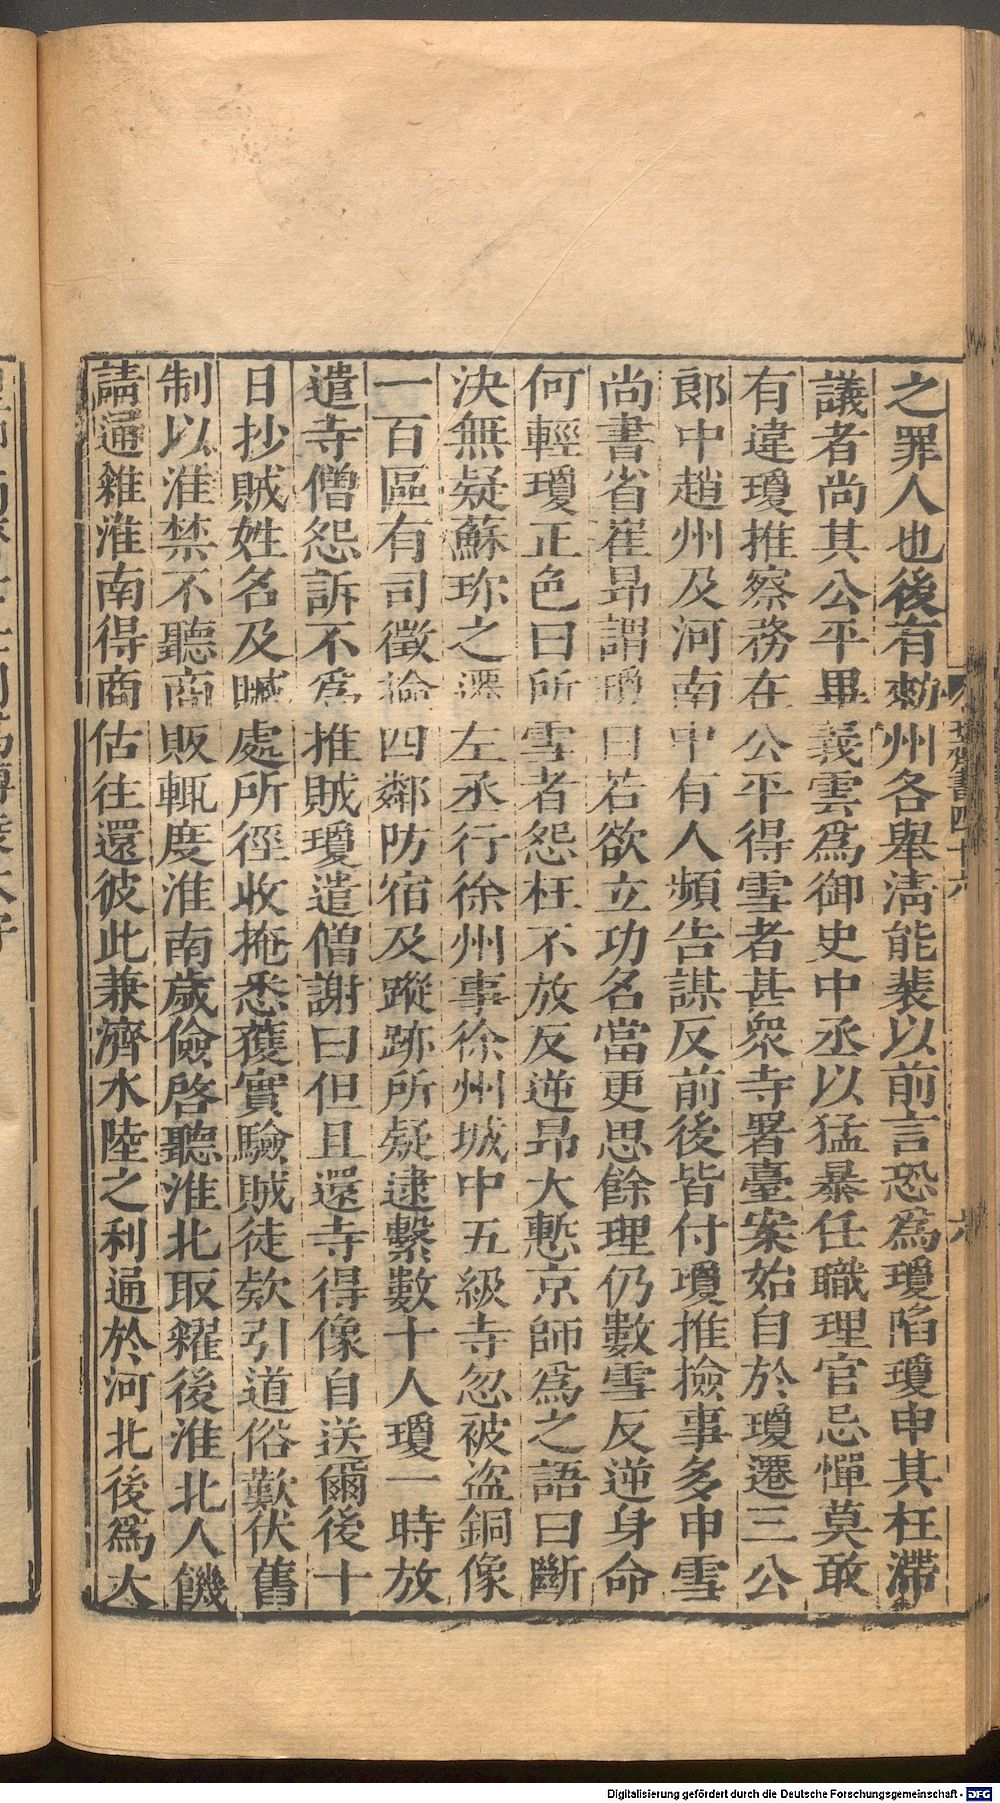 之罪人也後有勑州各舉清能裴以前言恐爲瓊陷瓊申其枉滯
議者尚其公平畢義雲爲御史中丞以猛暴任職理官忌憚莫敢
有違瓊推察務在公平得雪者甚衆寺署臺案始自於瓊遷三公
郎中趙州及河南中有人頻告謀反前後皆付瓊推撿事多申雪
尚書省崔昂謂瓊曰若欲立功名當更思餘理仍數雪反逆身命
何輕瓊正色曰所雪者怨枉不放反逆昂大慙京師爲之語曰斷
決無疑蘇珍之遷左丞行徐州事徐州城中五級寺忽被盗銅像
一百區有司徵撿四鄰防宿及蹤跡所疑逮繫數十人瓊一時放
遣寺僧怨訴不爲推賊瓊遣僧謝曰但且還寺得像自送爾後十
日抄賊姓名及贓處所徑收掩悉獲實驗賊徒欵引道俗歎伏舊
制以淮禁不聽商販輒度淮南歲儉啓聽淮北取糴後淮北人饑
請通糴淮南得商估往還彼此兼濟水陸之利通於河北後爲大
北齊書四十六
六
Digitalisierung gefördert durch die Deutsche Forschungsgemeinschaft - DFG